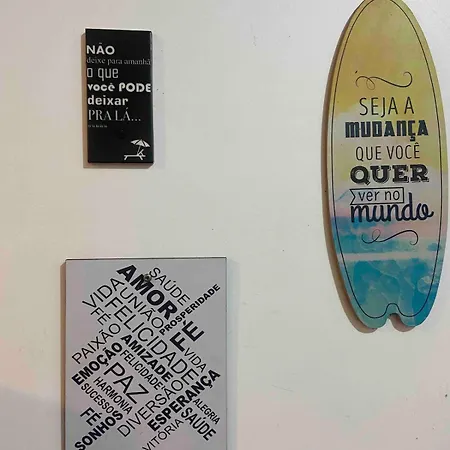 NÃO
deixe para amanhã
o que
você PODE
deixar
PRA LÁ...
SEJA A
MUDANÇA
QUE VOCÊ
QUER
ver no
mundo
AMOR
SAÚDE
PROSPERIDADE
VIDA
UNIÃO
FELICIDADE
FÉ
FÉ
PAIXÃO
EMOÇÃO
AMIZADE
FELICIDADE
VIDA
HARMONIA
PAZ
SUCESSO
DIVERSÃO
ESPERANÇA
ALEGRIA
FÉ
SONHOS
VITÓRIA
SAÚDE